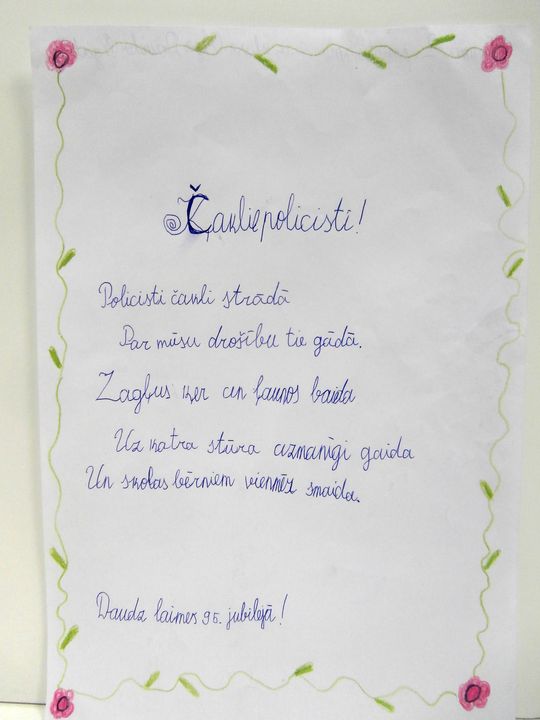 Čaklie policisti!
Policisti čakli strādā
Par mūsu drošību tie gādā.
Zagļus ķer un ļaunos baida
Uz katra stūra uzmanīgi gaida
Un skolas bērniem vienmēr smaida.
Daudz laimes 95. jubilejā!